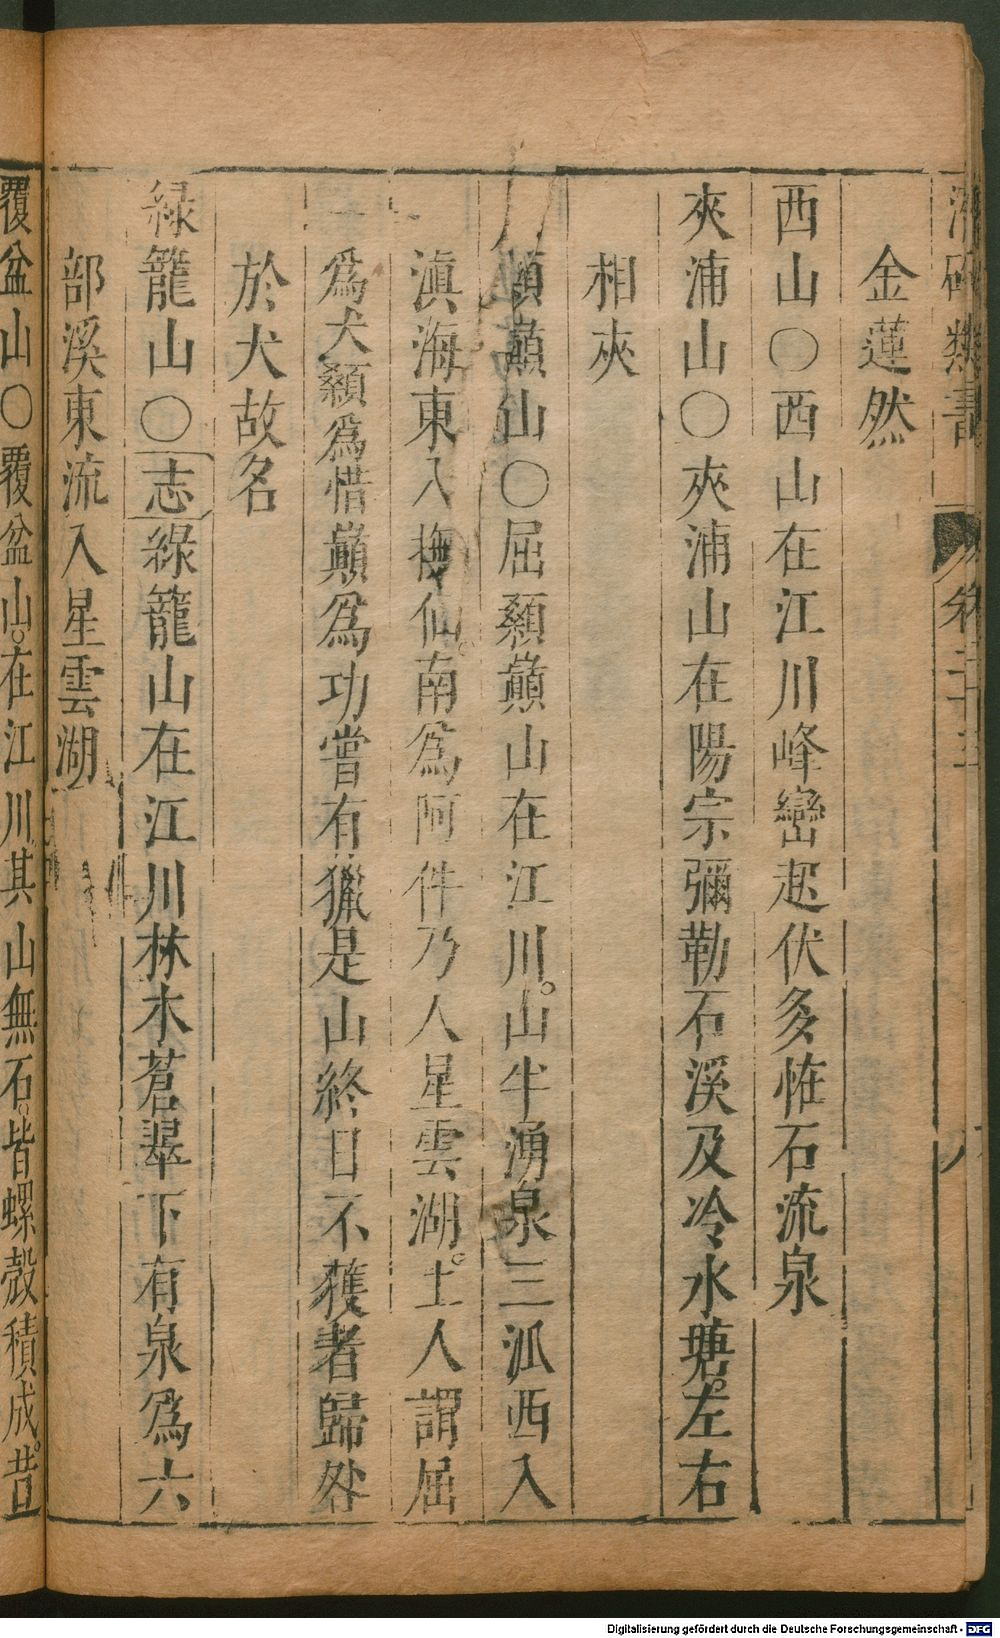 類書 卷二十三 八
金蓮然
西山○西山在江川峰巒起伏多恠石流泉
夾浦山○夾浦山在陽宗彌勒石溪及冷水塘左右
相夾
顙巔山○屈顙巔山在江川山半湧泉三泒西入
滇海東入撫仙南爲阿件乃人星雲湖土人謂屈
爲犬顙爲惜巔爲功嘗有獵是山終日不獲者歸咎
於犬故名
緑籠山○志緑籠山在江川林木蒼翠下有泉爲六
部溪東流入星雲湖
覆盆山○覆盆山在江川其山無石皆螺殻積成昔
Digitalisierung gefördert durch die Deutsche Forschungsgemeinschaft - DFG